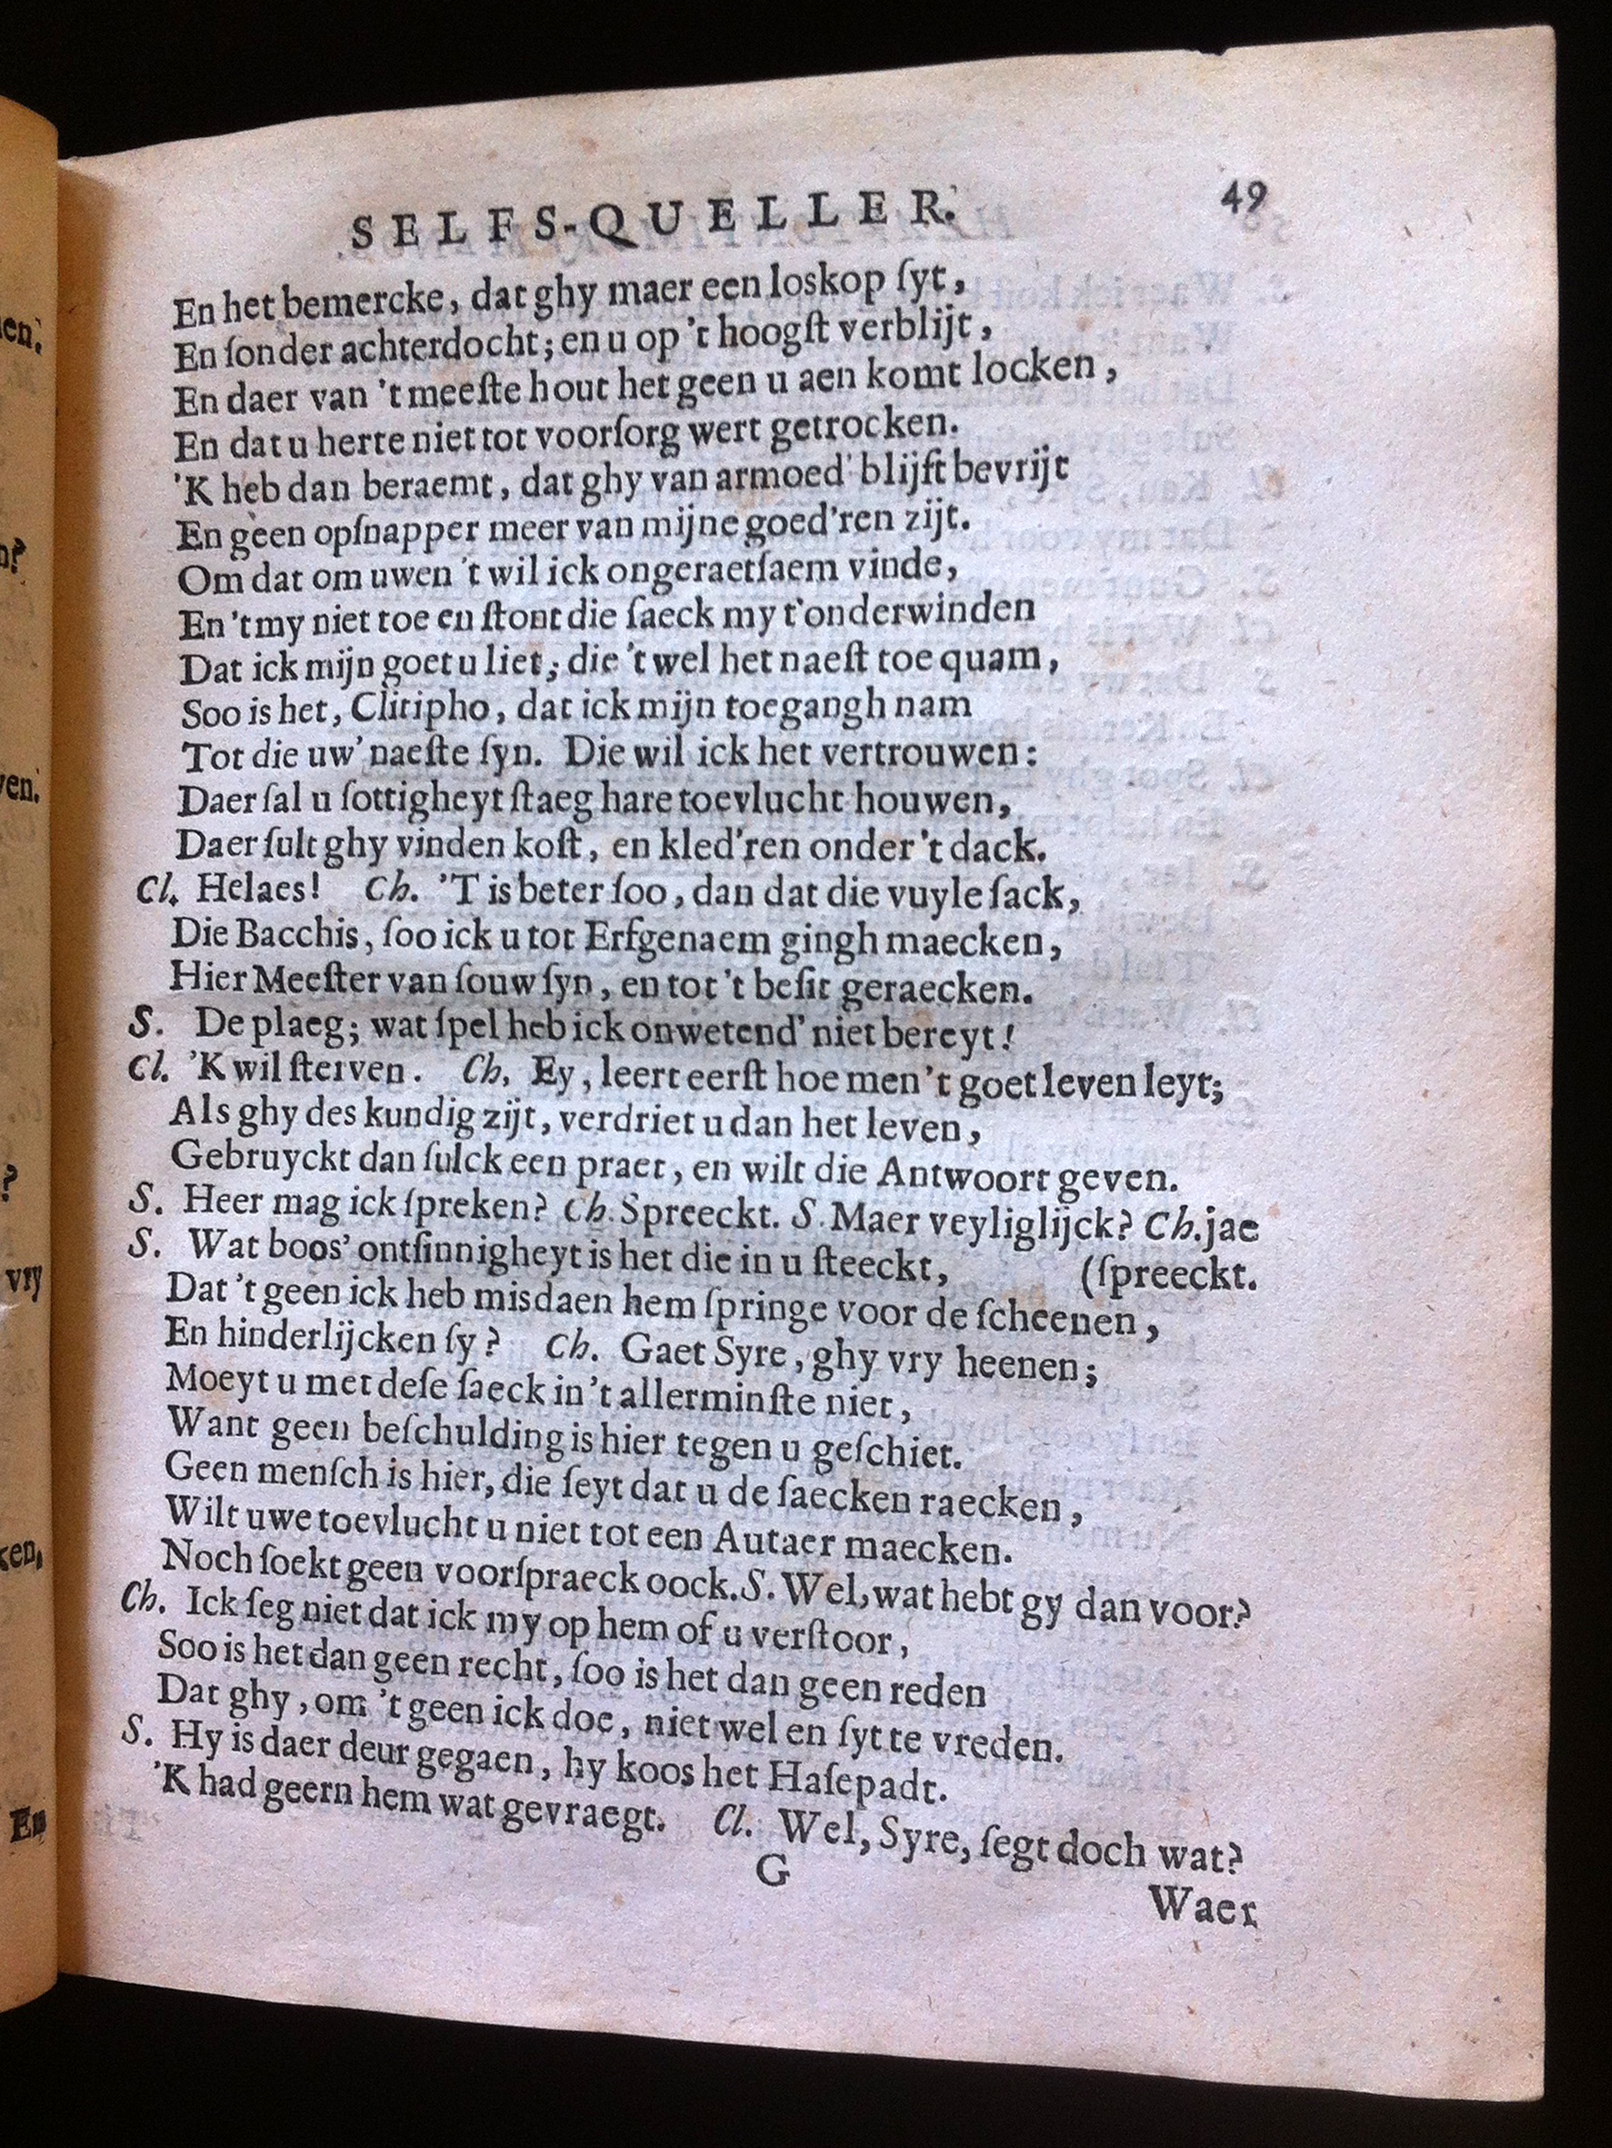 SELFS-QUELLER. 49
En het bemercke, dat ghy maer een loskop ſyt,
En ſonder achterdocht; en u op 't hoogſt verblijt,
En daer van 't meeſte hout het geen u aen komt locken,
En dat u herte niet tot voorſorg wert getrocken.
'K heb dan beraemt, dat ghy van armoed' blijft bevrijt
En geen opſnapper meer van mijne goed'ren zijt.
Om dat om uwen 't wil ick ongeraetſaem vinde,
En 't my niet toe en ſtont die ſaeck my t'onderwinden
Dat ick mijn goet u liet; die 't wel het naeſt toe quam,
Soo is het, Clitipho, dat ick mijn toegangh nam
Tot die uw' naeſte ſyn. Die wil ick het vertrouwen:
Daer ſal u ſottigheyt ſtaeg hare toevlucht houwen,
Daer ſult ghy vinden koſt, en kled'ren onder 't dack.
Cl. Helaes! Ch. 'T is beter ſoo, dan dat die vuyle ſack,
Die Bacchis, ſoo ick u tot Erfgenaem gingh maecken,
Hier Meeſter van ſouw ſyn, en tot 't beſit geraecken.
S. De plaeg; wat ſpel heb ick onwetend' niet bereyt!
Cl. 'K wil ſterven. Ch. Ey, leert eerſt hoe men 't goet leven leyt;
Als ghy des kundig zijt, verdriet u dan het leven,
Gebruyckt dan ſulck een praet, en wilt die Antwoort geven.
S. Heer mag ick ſpreken? Ch. Spreeckt. S. Maer veyliglijck? Ch. jae
S. Wat boos' ontſinnigheyt is het die in u ſteeckt, (ſpreeckt.
Dat 't geen ick heb misdaen hem ſpringe voor de ſcheenen,
En hinderlijcken ſy? Ch. Gaet Syre, ghy vry heenen;
Moeyt u met deſe ſaeck in 't allerminſte niet,
Want geen beſchulding is hier tegen u geſchiet.
Geen menſch is hier, die ſeyt dat u de ſaecken raecken,
Wilt uwe toevlucht u niet tot een Autaer maecken.
Noch ſoekt geen voorſpraeck oock. S. Wel, wat hebt gy dan voor?
Ch. Ick ſeg niet dat ick my op hem of u verſtoor,
Soo is het dan geen recht, ſoo is het dan geen reden
Dat ghy, om 't geen ick doe, niet wel en ſyt te vreden.
S. Hy is daer deur gegaen, hy koos het Haſepadt.
'K had geern hem wat gevraegt. Cl. Wel, Syre, ſegt doch wat?
G
Waer
en.
n?
ven.
?
vry
ken,
En